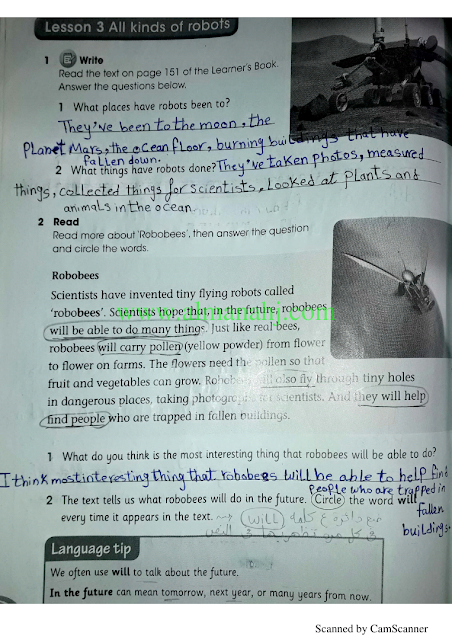 Lesson 3 All kinds of robots
1 Write
Read the text on page 151 of the Learner's Book.
Answer the questions below.
1 What places have robots been to?
They've been to the moon, the
Planet Mars, the ocean floor, burning buildings that have
fallen down.
2 What things have robots done? They've taken photos, measured
things, collected things for scientists, looked at plants and
animals in the ocean
2 Read
Read more about 'Robobees', then answer the question
and circle the words.
Robobees
Scientists have invented tiny flying robots called
'robobees'. Scientists hope that, in the future, robobees
www.almanahj.com
will be able to do many things. Just like real bees,
robobees will carry pollen (yellow powder) from flower
to flower on farms. The flowers need the pollen so that
fruit and vegetables can grow. Robobees will also fly through tiny holes
in dangerous places, taking photographs for scientists. And they will help
find people who are trapped in fallen buildings.
1 What do you think is the most interesting thing that robobees will be able to do?
I think most interesting thing that robobees will be able to help find
people who are trapped in
2 The text tells us what robobees will do in the future. Circle the word will
fallen
every time it appears in the text. (will) كلمة
buildings.
Language tip
We often use will to talk about the future.
In the future can mean tomorrow, next year, or many years from now.
Scanned by CamScanner